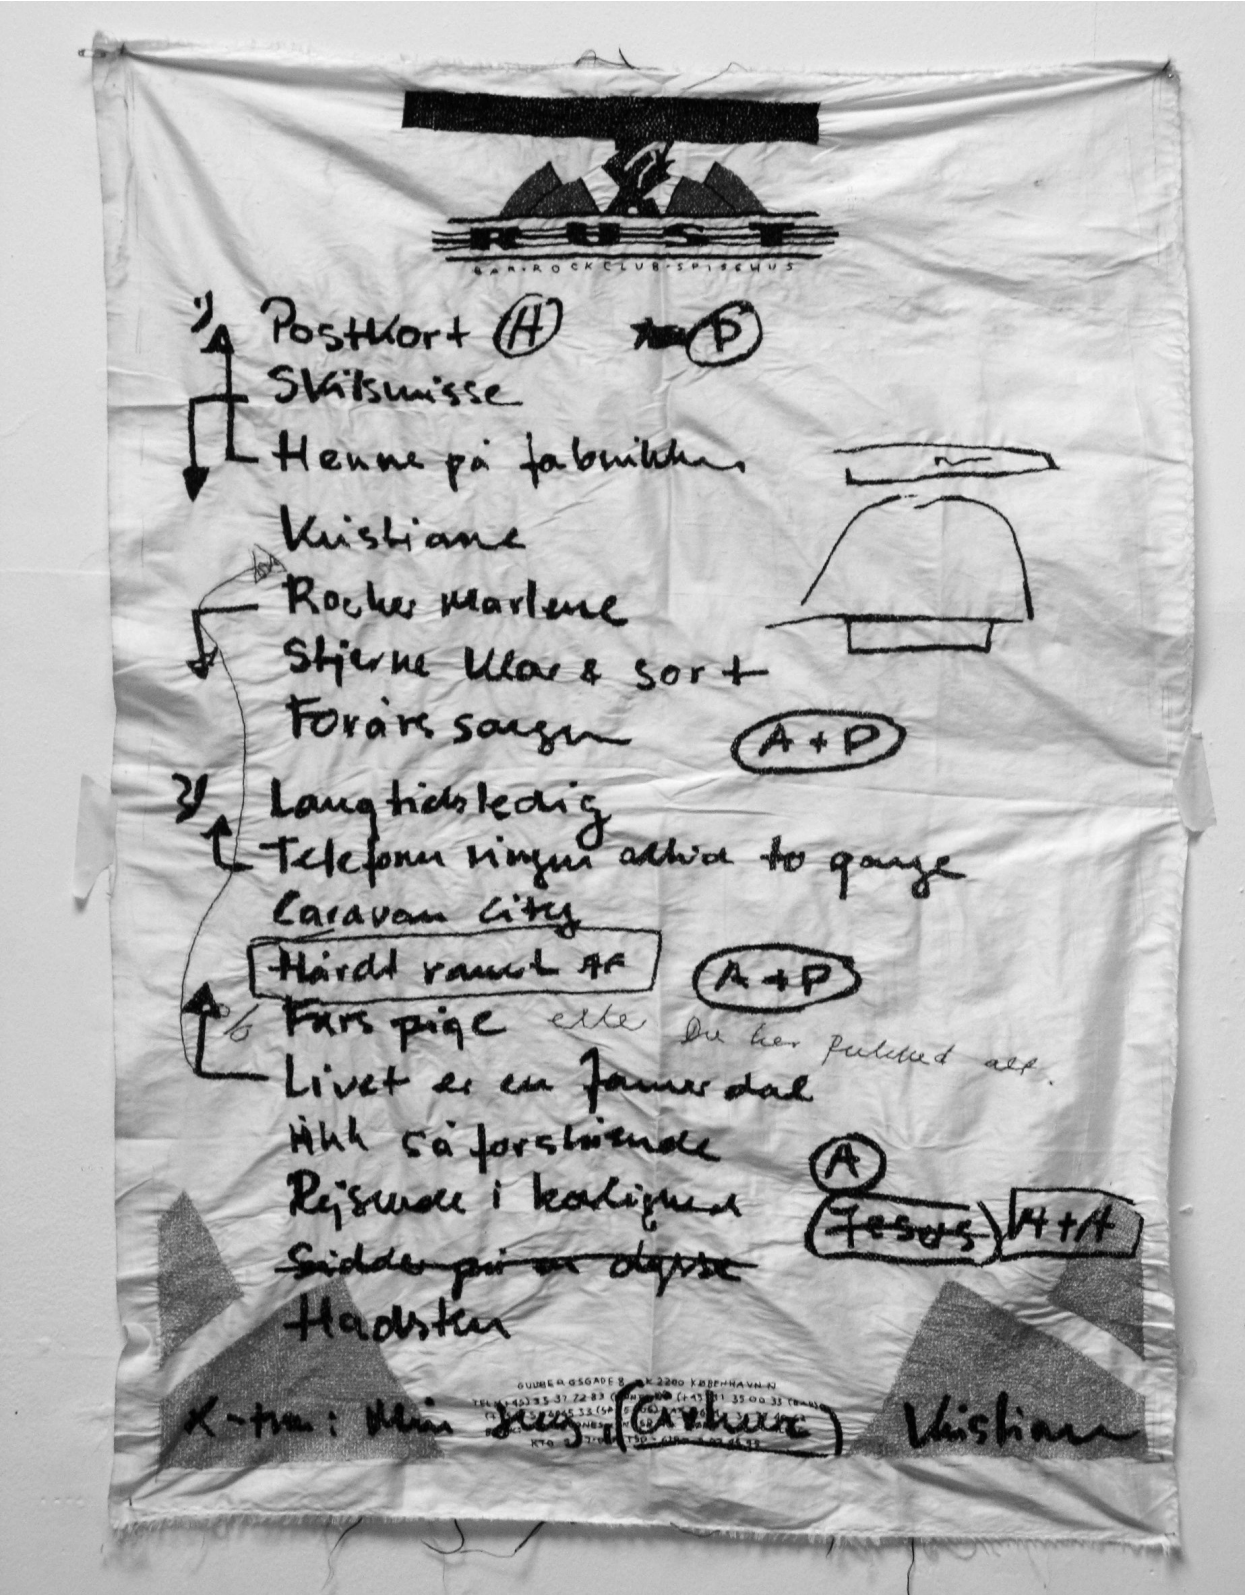 RUST
BAR·ROCKCLUB·SPISEHUS
1) Postkort (A) (P)
Skilsmisse
Henne på fabrikken
Kristiane
Rocker Marlene
Stjerne klar & sort
Forårssangen A+P
2) Langtidsledig
Telefonen ringer altid to gange
Caravan City
Hårdt ramt AF A+P
Fars pige eller Du har pukket alt.
Livet er en Jammerdal
Åhh så forstående A
Rejsende i kærlighed Jesus A+A
Sidder på en dysse
Hadsten
GULDBERGSGADE 8 DK 2200 KØBENHAVN N
X-tra: Min Kristiane